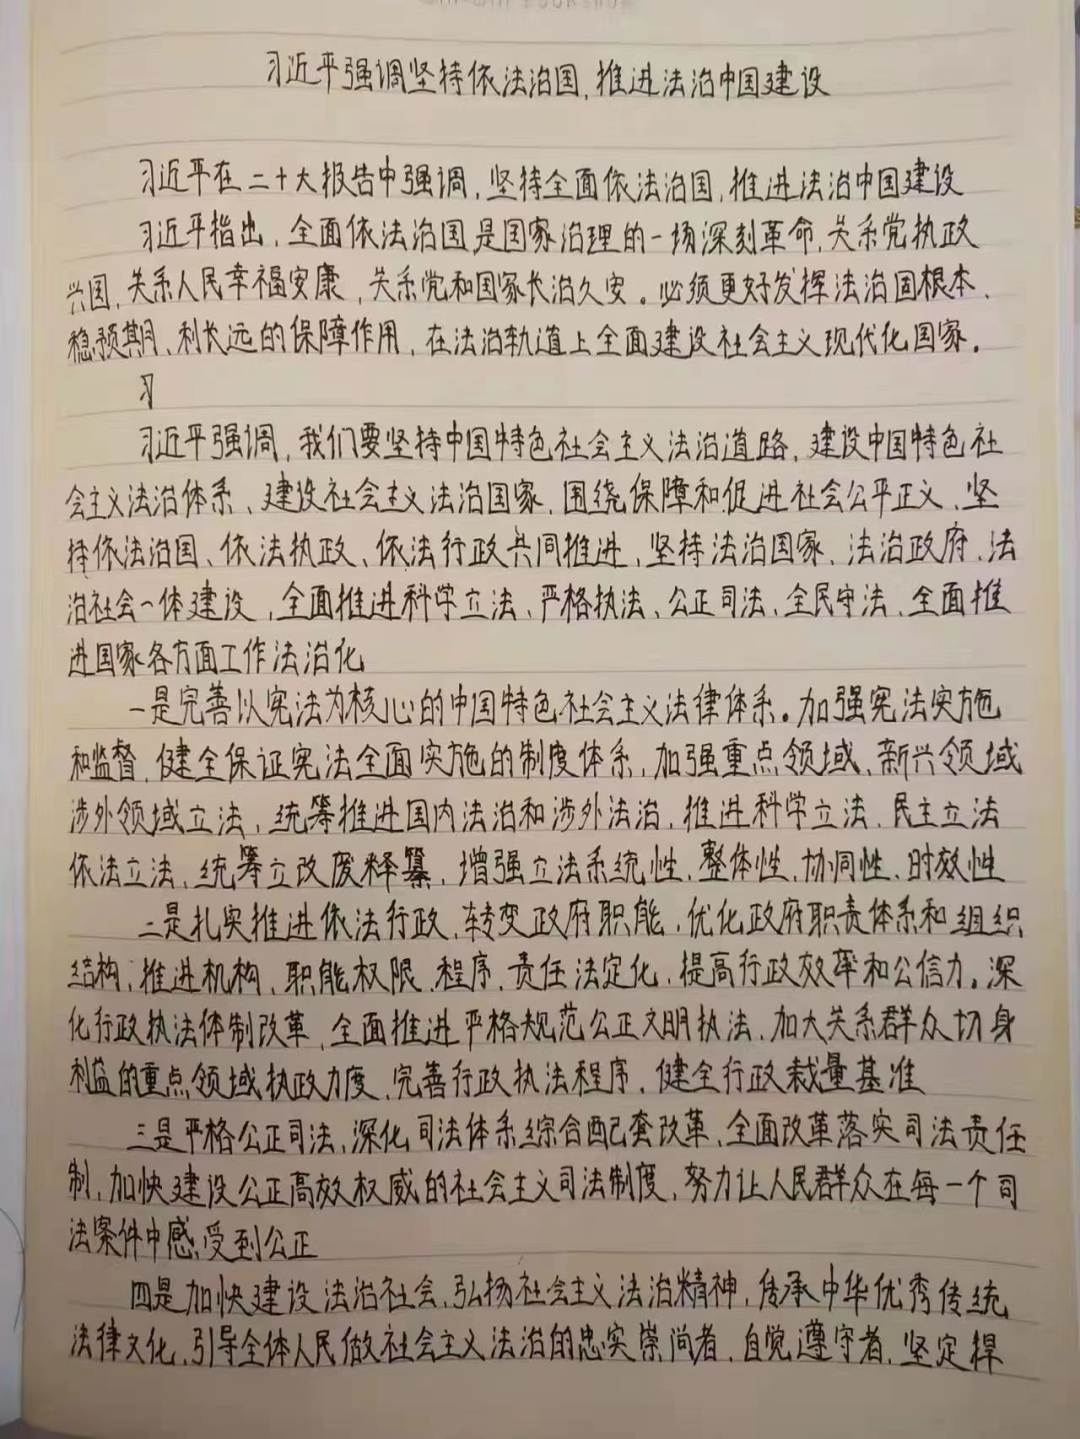 习近平强调坚持依法治国，推进法治中国建设
习近平在二十大报告中强调，坚持全面依法治国，推进法治中国建设
习近平指出，全面依法治国是国家治理的一场深刻革命，关系党执政
兴国，关系人民幸福安康，关系党和国家长治久安。必须更好发挥法治固根本、
稳预期、利长远的保障作用，在法治轨道上全面建设社会主义现代化国家。
习
习近平强调，我们要坚持中国特色社会主义法治道路，建设中国特色社
会主义法治体系、建设社会主义法治国家，围绕保障和促进社会公平正义，坚
持依法治国、依法执政、依法行政共同推进，坚持法治国家、法治政府、法
治社会一体建设，全面推进科学立法、严格执法、公正司法、全民守法，全面推
进国家各方面工作法治化
一是完善以宪法为核心的中国特色社会主义法律体系。加强宪法实施
和监督，健全保证宪法全面实施的制度体系，加强重点领域、新兴领域
涉外领域立法，统筹推进国内法治和涉外法治，推进科学立法、民主立法
依法立法，统筹立改废释纂，增强立法系统性、整体性、协同性、时效性
二是扎实推进依法行政，转变政府职能，优化政府职责体系和组织
结构，推进机构、职能权限、程序、责任法定化，提高行政效率和公信力。深
化行政执法体制改革，全面推进严格规范公正文明执法，加大关系群众切身
利益的重点领域执政力度，完善行政执法程序，健全行政裁量基准
三是严格公正司法，深化司法体系综合配套改革，全面改革落实司法责任
制，加快建设公正高效权威的社会主义司法制度，努力让人民群众在每一个司
法案件中感受到公正
四是加快建设法治社会，弘扬社会主义法治精神，传承中华优秀传统
法律文化，引导全体人民做社会主义法治的忠实崇尚者，自觉遵守者，坚定捍